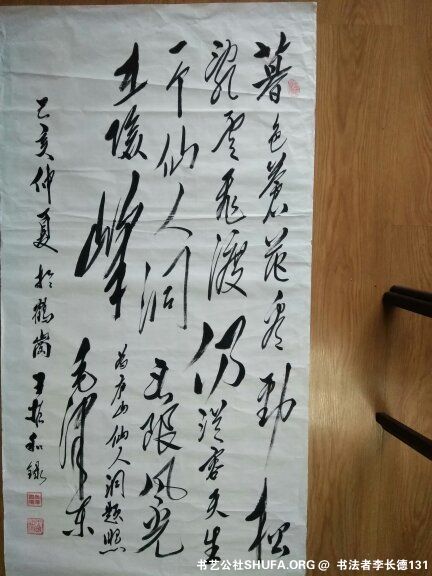 暮色蒼茫看勁松
乱雲飛渡仍從容天生
一个仙人洞无限风光
在險峰
为庐山仙人洞题照
毛泽东
己亥仲夏於鶴崗
书艺公社SHUFA.ORG @ 书法者李长德131